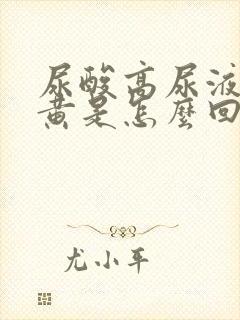 尿酸高尿液
黃是怎麼回
尤小平